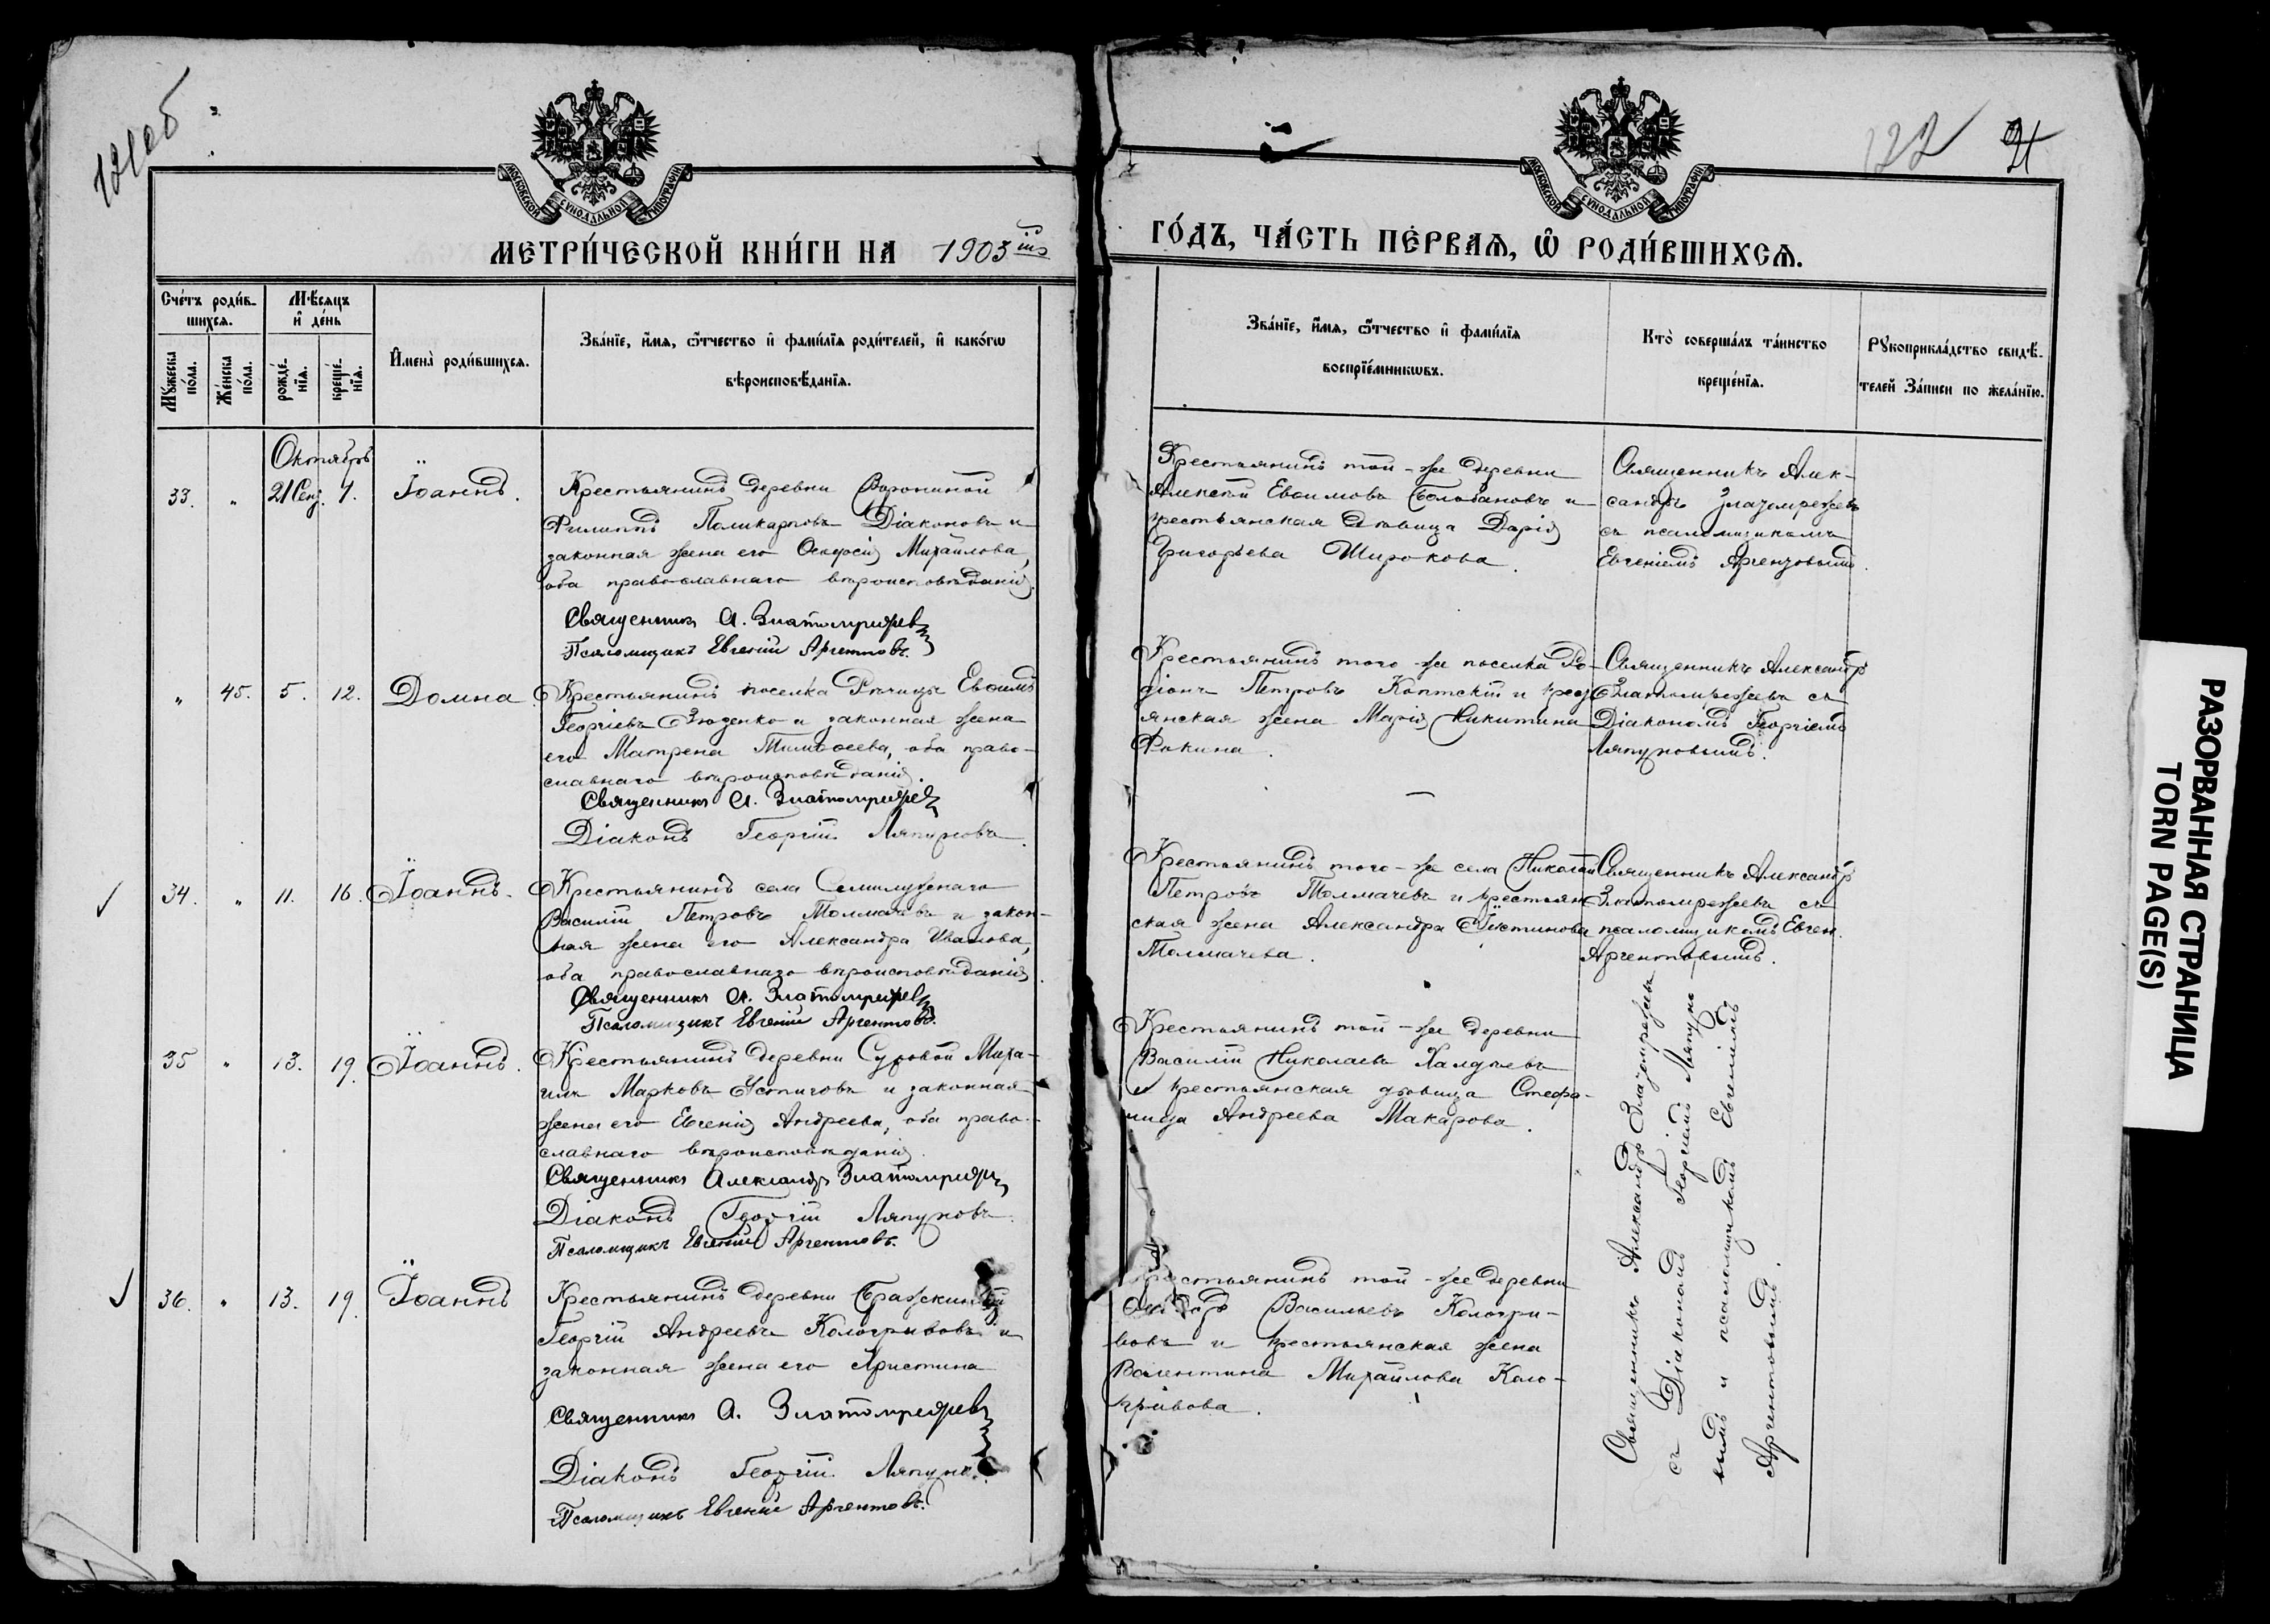 121об
МОСКОВСКОЙ СѴНОДАЛЬНОЙ ТИПОГРАФІИ
МЕТРИ́ЧЕСКОЙ КНИ́ГИ НА 1903
Сче́тъ роди́в-
шихсѧ.
Мѣ́сѧцъ
и҆ де́нь
Мꙋ́жеска
по́ла.
Же́нска
по́ла.
рожде́-
нїѧ.
креще́-
нїѧ.
И҆мена̀ роди́вшихсѧ.
Зва́нїе, и҆́мѧ, ѻ҆́тчество и҆ фами́лїѧ роди́телей, и҆ како́гѡ
вѣроисповѣ́данїѧ.
Октябрь
33. " 21 Сен. 1. Іоаннъ.
Крестьянинъ деревни Ворониной
Филиппъ Поликарповъ Діаконовъ и
законная жена его Ѳеодосія Михайлова,
оба православнаго вѣроисповѣданія.
Священникъ А. Златомрежев
Псаломщикъ Евгеній Аргентовъ.
" 45. 5. 12. Домна.
Крестьянинъ поселка Рѣчицы Евѳимъ
Георгіевъ Зюзенко и законная жена
его Матрена Тимоѳеева, оба право-
славнаго вѣроисповѣданія.
Священникъ А. Златомрежев
Діаконъ Георгій Ляпуновъ.
34. " 11. 16. Іоаннъ.
Крестьянинъ села Семилужнаго
Василій Петровъ Толмачевъ и закон-
ная жена его Александра Иванова,
оба православнаго вѣроисповѣданія.
Священникъ А. Златомрежев
Псаломщикъ Евгеній Аргентовъ.
35 " 13. 19. Іоаннъ.
Крестьянинъ деревни Суровой Миха-
илъ Марковъ Устиговъ и законная
жена его Евгенія Андреева, оба право-
славнаго вѣроисповѣданія.
Священникъ Александръ Златомреж
Діаконъ Георгій Ляпуновъ.
Псаломщикъ Евгеній Аргентовъ.
36. " 13. 19. Іоаннъ
Крестьянинъ деревни
Георгій Андреевъ Кологривовъ и
законная жена его Христина
Священникъ А. Златомрежев
Діаконъ Георгій Ляпунов
Псаломщикъ Евгеній Аргентовъ.
122 21
МОСКОВСКОЙ СѴНОДАЛЬНОЙ ТИПОГРАФІИ
ГО́ДЪ, ЧА́СТЬ ПЕ́РВАѦ, Ѡ҆ РОДИ́ВШИХСѦ.
Зва́нїе, и҆́мѧ, ѻ҆́тчество и҆ фами́лїѧ
воспрїе́мникѡвъ.
Кто̀ соверша́лъ та́инство
креще́нїѧ.
Рꙋкоприкла́дство свидѣ́-
телей За́писи по жела́нїю.
Крестьянинъ той-же деревни
Алексѣй Евѳимовъ Болобановъ и
крестьянская дѣвица Дарія
Григорьева Широкова.
Священникъ Алек-
сандръ Златомрежевъ
съ псаломщикомъ
Евгеніемъ Аргентовымъ.
Крестьянинъ того-же поселка Ро-
діонъ Петровъ Коптскій и крест
янская жена Марія Никитина
Фокина.
Священникъ Александръ
Златомрежевъ съ
Діакономъ Георгіемъ
Ляпуновымъ.
Крестьянинъ того-же села Николай
Петровъ Толмачевъ и крестьян
ская жена Александра Іустинова
Толмачева.
Священникъ Александръ
Златомрежевъ съ
псаломщикомъ Евген.
Аргентовымъ.
Крестьянинъ той-же деревни
Василій Николаевъ Халдѣевъ
и крестьянская дѣвица Стефа-
нида Андреева Макарова.
Крестьянинъ той-же деревни
Васильевъ Кологри-
вовъ и крестьянская жена
Валентина Михайлова Коло-
гривова.
Священникъ Александръ Златомрежевъ
съ Діакономъ Георгіемъ Ляпуно
вымъ и псаломщикомъ Евгеніемъ
Аргентовымъ.
РАЗОРВАННАЯ СТРАНИЦА
TORN PAGE(S)